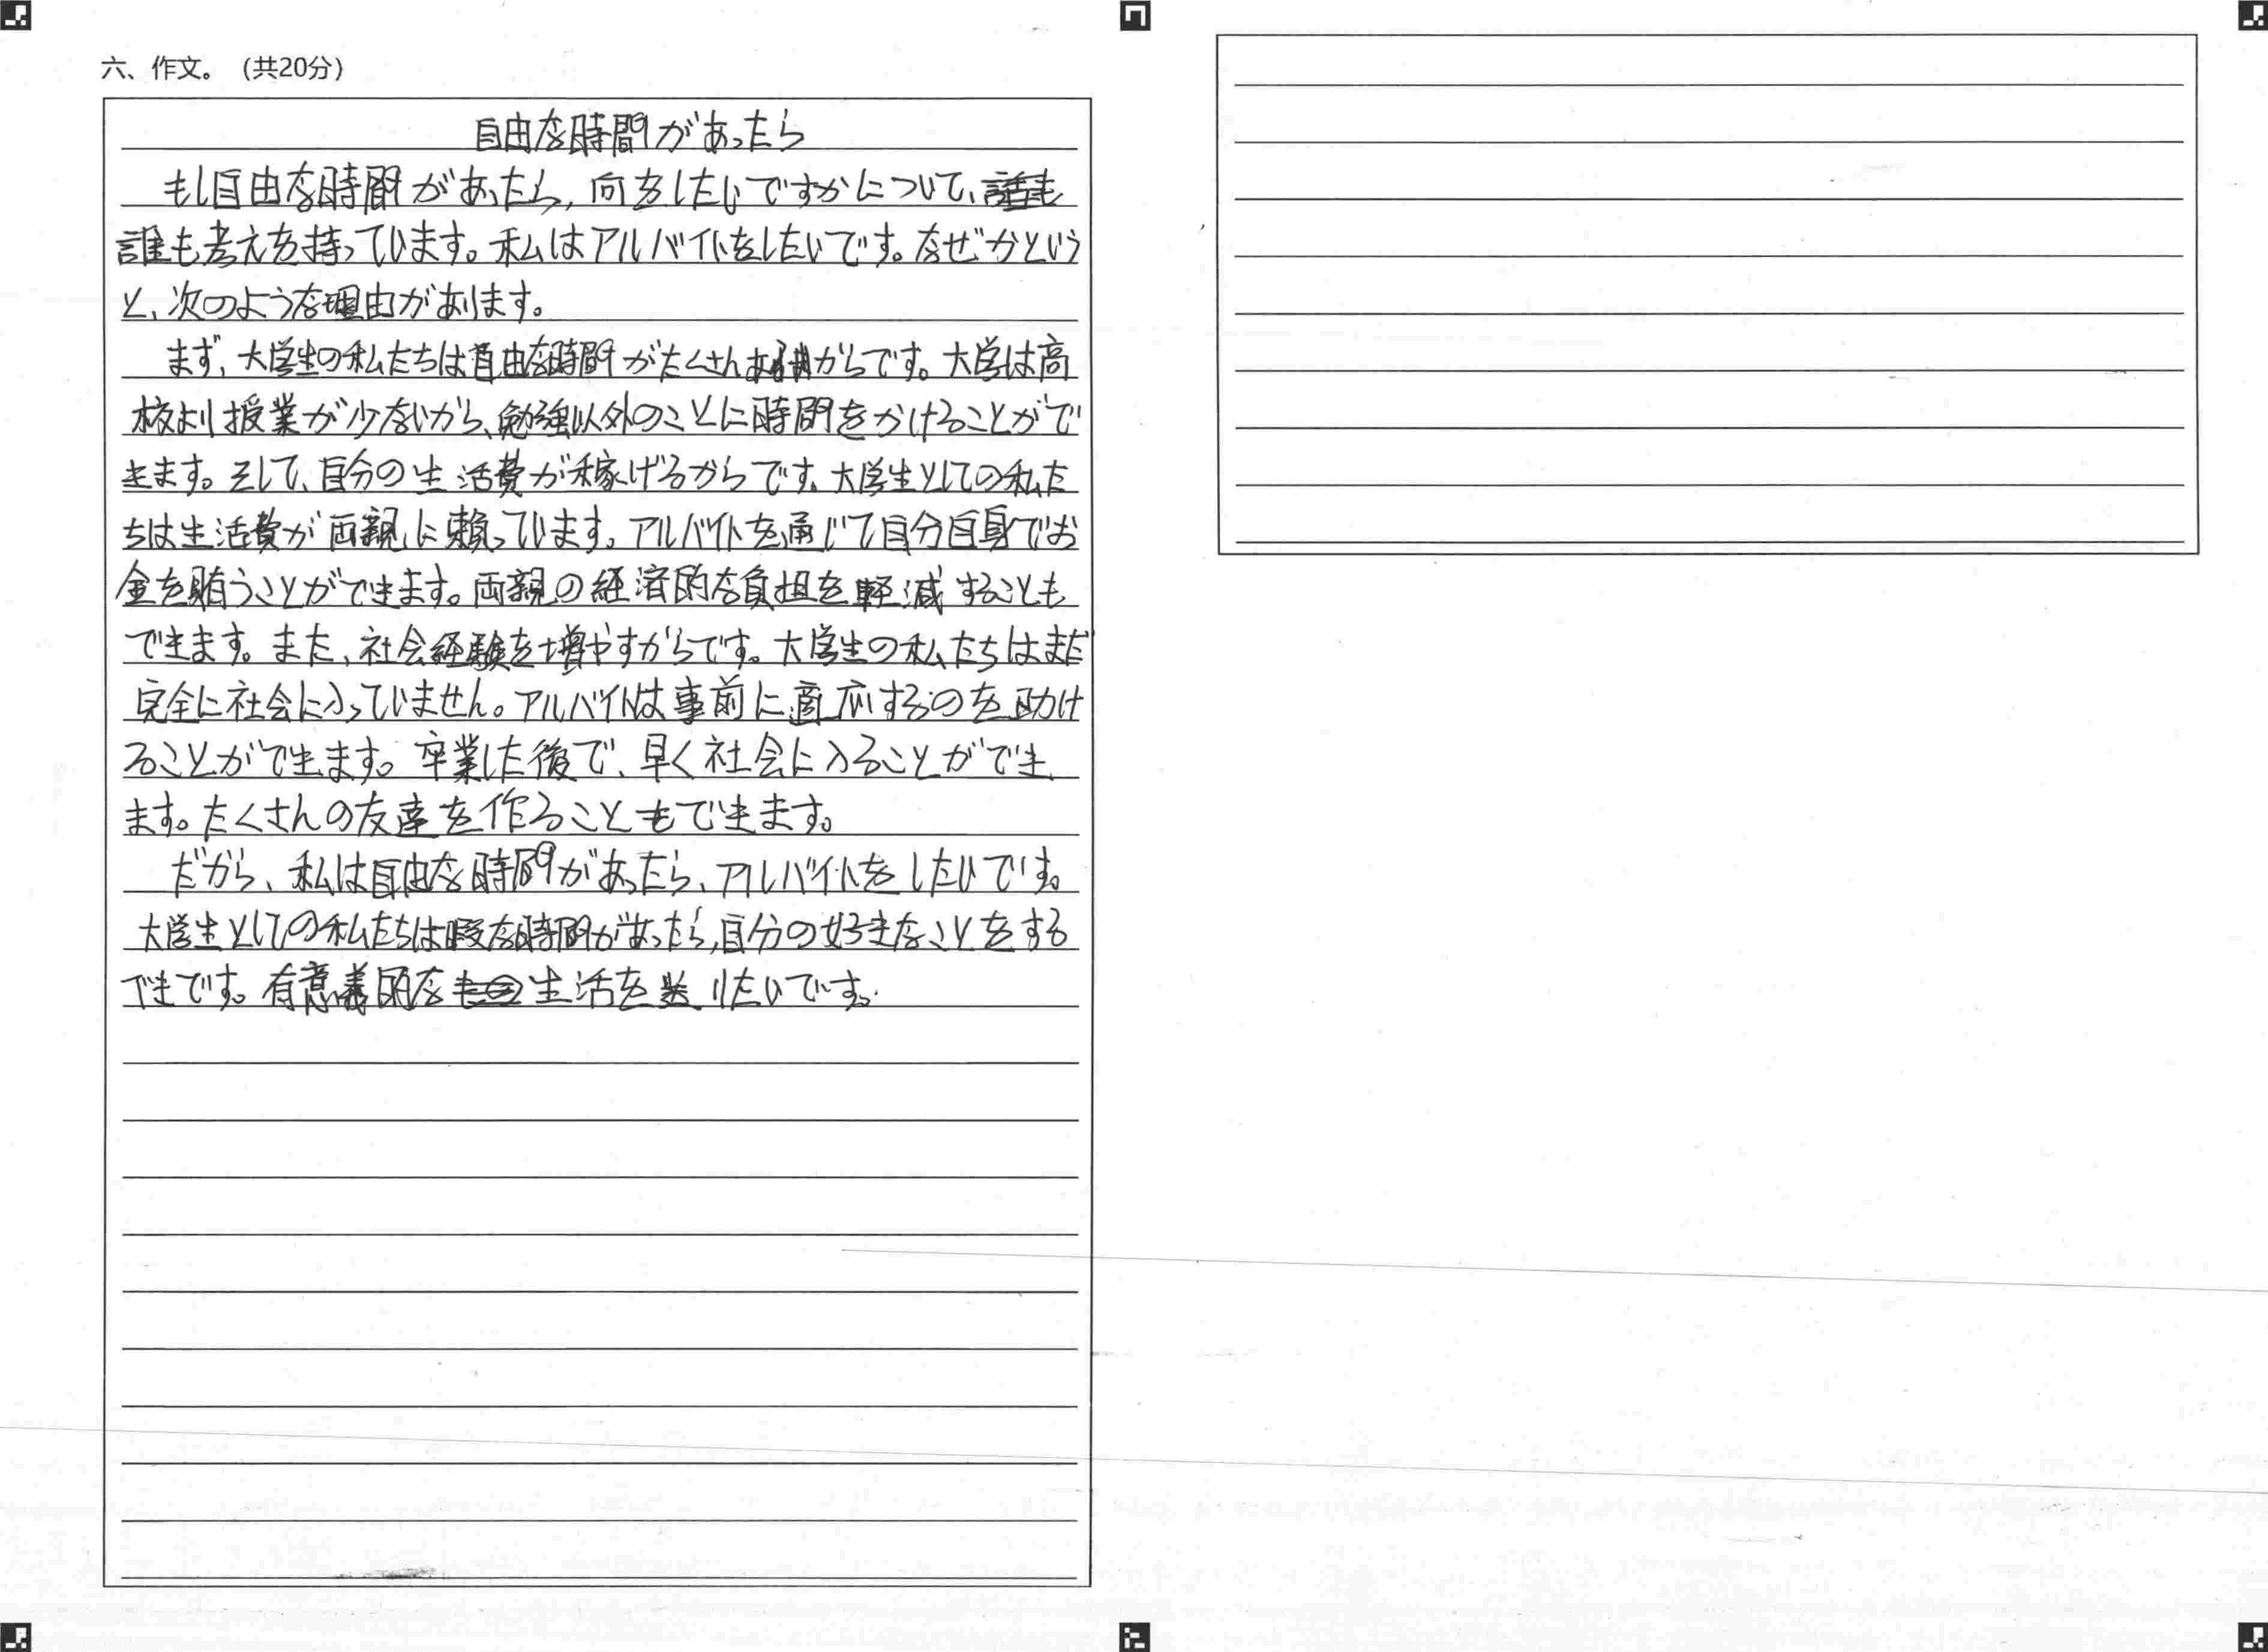 六、作文。（共20分）
自由な時間があったら
もし自由な時間があったら,何をしたいですかについて、
誰も考えを持っています。私はアルバイトをしたいです。なぜかという
と、次のような理由があります。
まず、大学生の私たちは自由な時間がたくさんあるからです。大学は高
校より授業が少ないから、勉強以外のことに時間をかけることがで
きます。そして、自分の生活費が稼げるからです。大学生としての私た
ちは生活費が両親に頼っています。アルバイトを通じて自分自身でお
金を賄うことができます。両親の経済的な負担を軽減することも
できます。また、社会経験を増やすからです。大学生の私たちはまだ
完全に社会に入っていません。アルバイトは事前に適応するのを助け
ることができます。卒業した後で、早く社会に入ることができ
ます。たくさんの友達を作ることもできます。
だから、私は自由な時間があったら、アルバイトをしたいです。
大学生としての私たちは暇な時間があったら,自分の好きなことをする
できです。有意義的な生活を送りたいです。